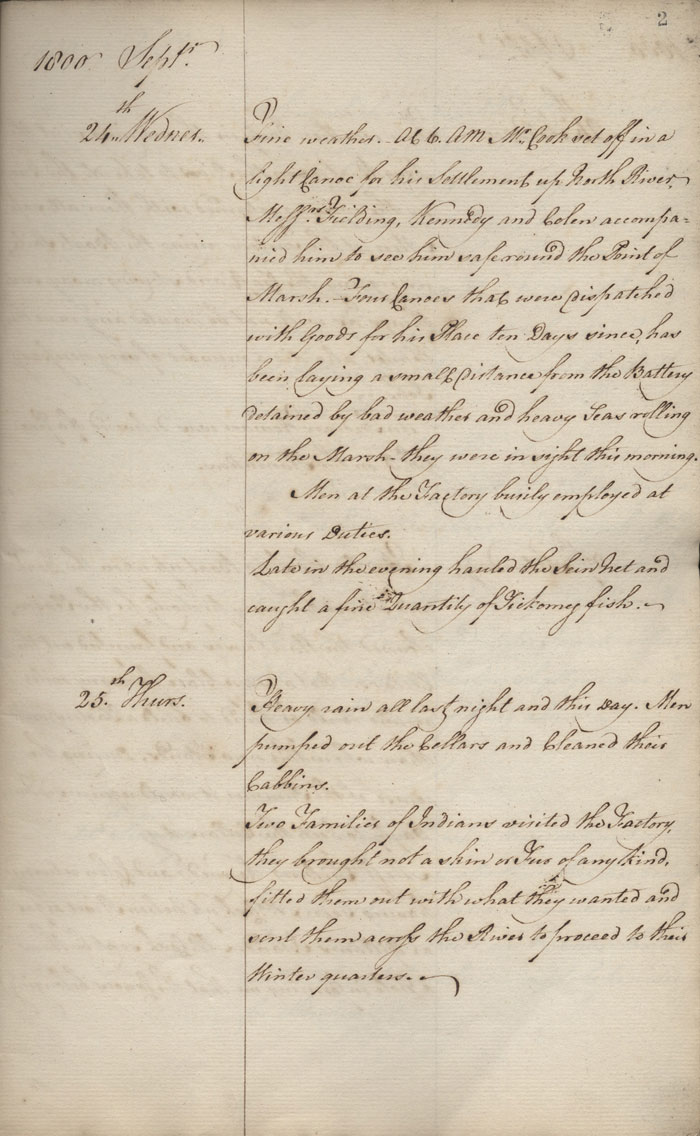 2
1800 Septr.
24th Wednes. Fine weather. - At 6. AM Mr. Cook set off in a
light Canoe for his Settlement up North River.
Messrs. Fielding, Kennedy and Colen accompa-
nied him to see him safe round the Point of
Marsh. - Four Canoes that were dispatched
with Goods for his Place ten Days since, has
been laying a small distance from the Battery
detained by bad weather and heavy Seas rolling
on the Marsh - they were in sight this morning.
Men at the Factory busily employed at
various Duties.
Late in the evening hauled the Sein Net and
caught a fine Quantity of Tickomeg fish. -
25th. Thurs. Heavy rain all last night and this Day. Men
pumped out the Cellars and Cleaned their
Cabbins.
Two Families of Indians visited the Factory,
they brought not a skin or Fur of any kind,
fitted them out with what they wanted and
sent them across the River to proceed to their
Winter quarters. -